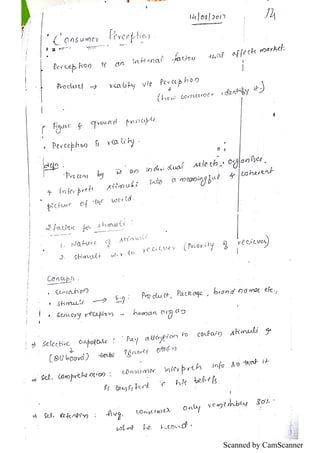 14/08/2017
Consumer Perception
Perception is an internal factor that affects market.
Product → reality v/s Perception
(how consumer identify it.)
Figure & ground principle.
Perception is reality.
defn:
Process by is an individual select, organise,
& interprets stimuli into a meaningful & coherent
picture of the world.
2 factor for stimuli:
1. Nature of stimuli
2. Stimuli w.r.to reciever (Priority of reciever)
Concepts:
• Sensation
• Stimuli → Eg: Product, Package, brand names etc,
• Sensory receptors - human organs
Selective exposure: Pay attention to certain stimuli &
(Billboard) ignores others
Sel. Comprehension: consumer interprets info so that it
is consistent his beliefs
Sel. Retention: Avg. consumer only remembers 80%
what he
Scanned by CamScanner